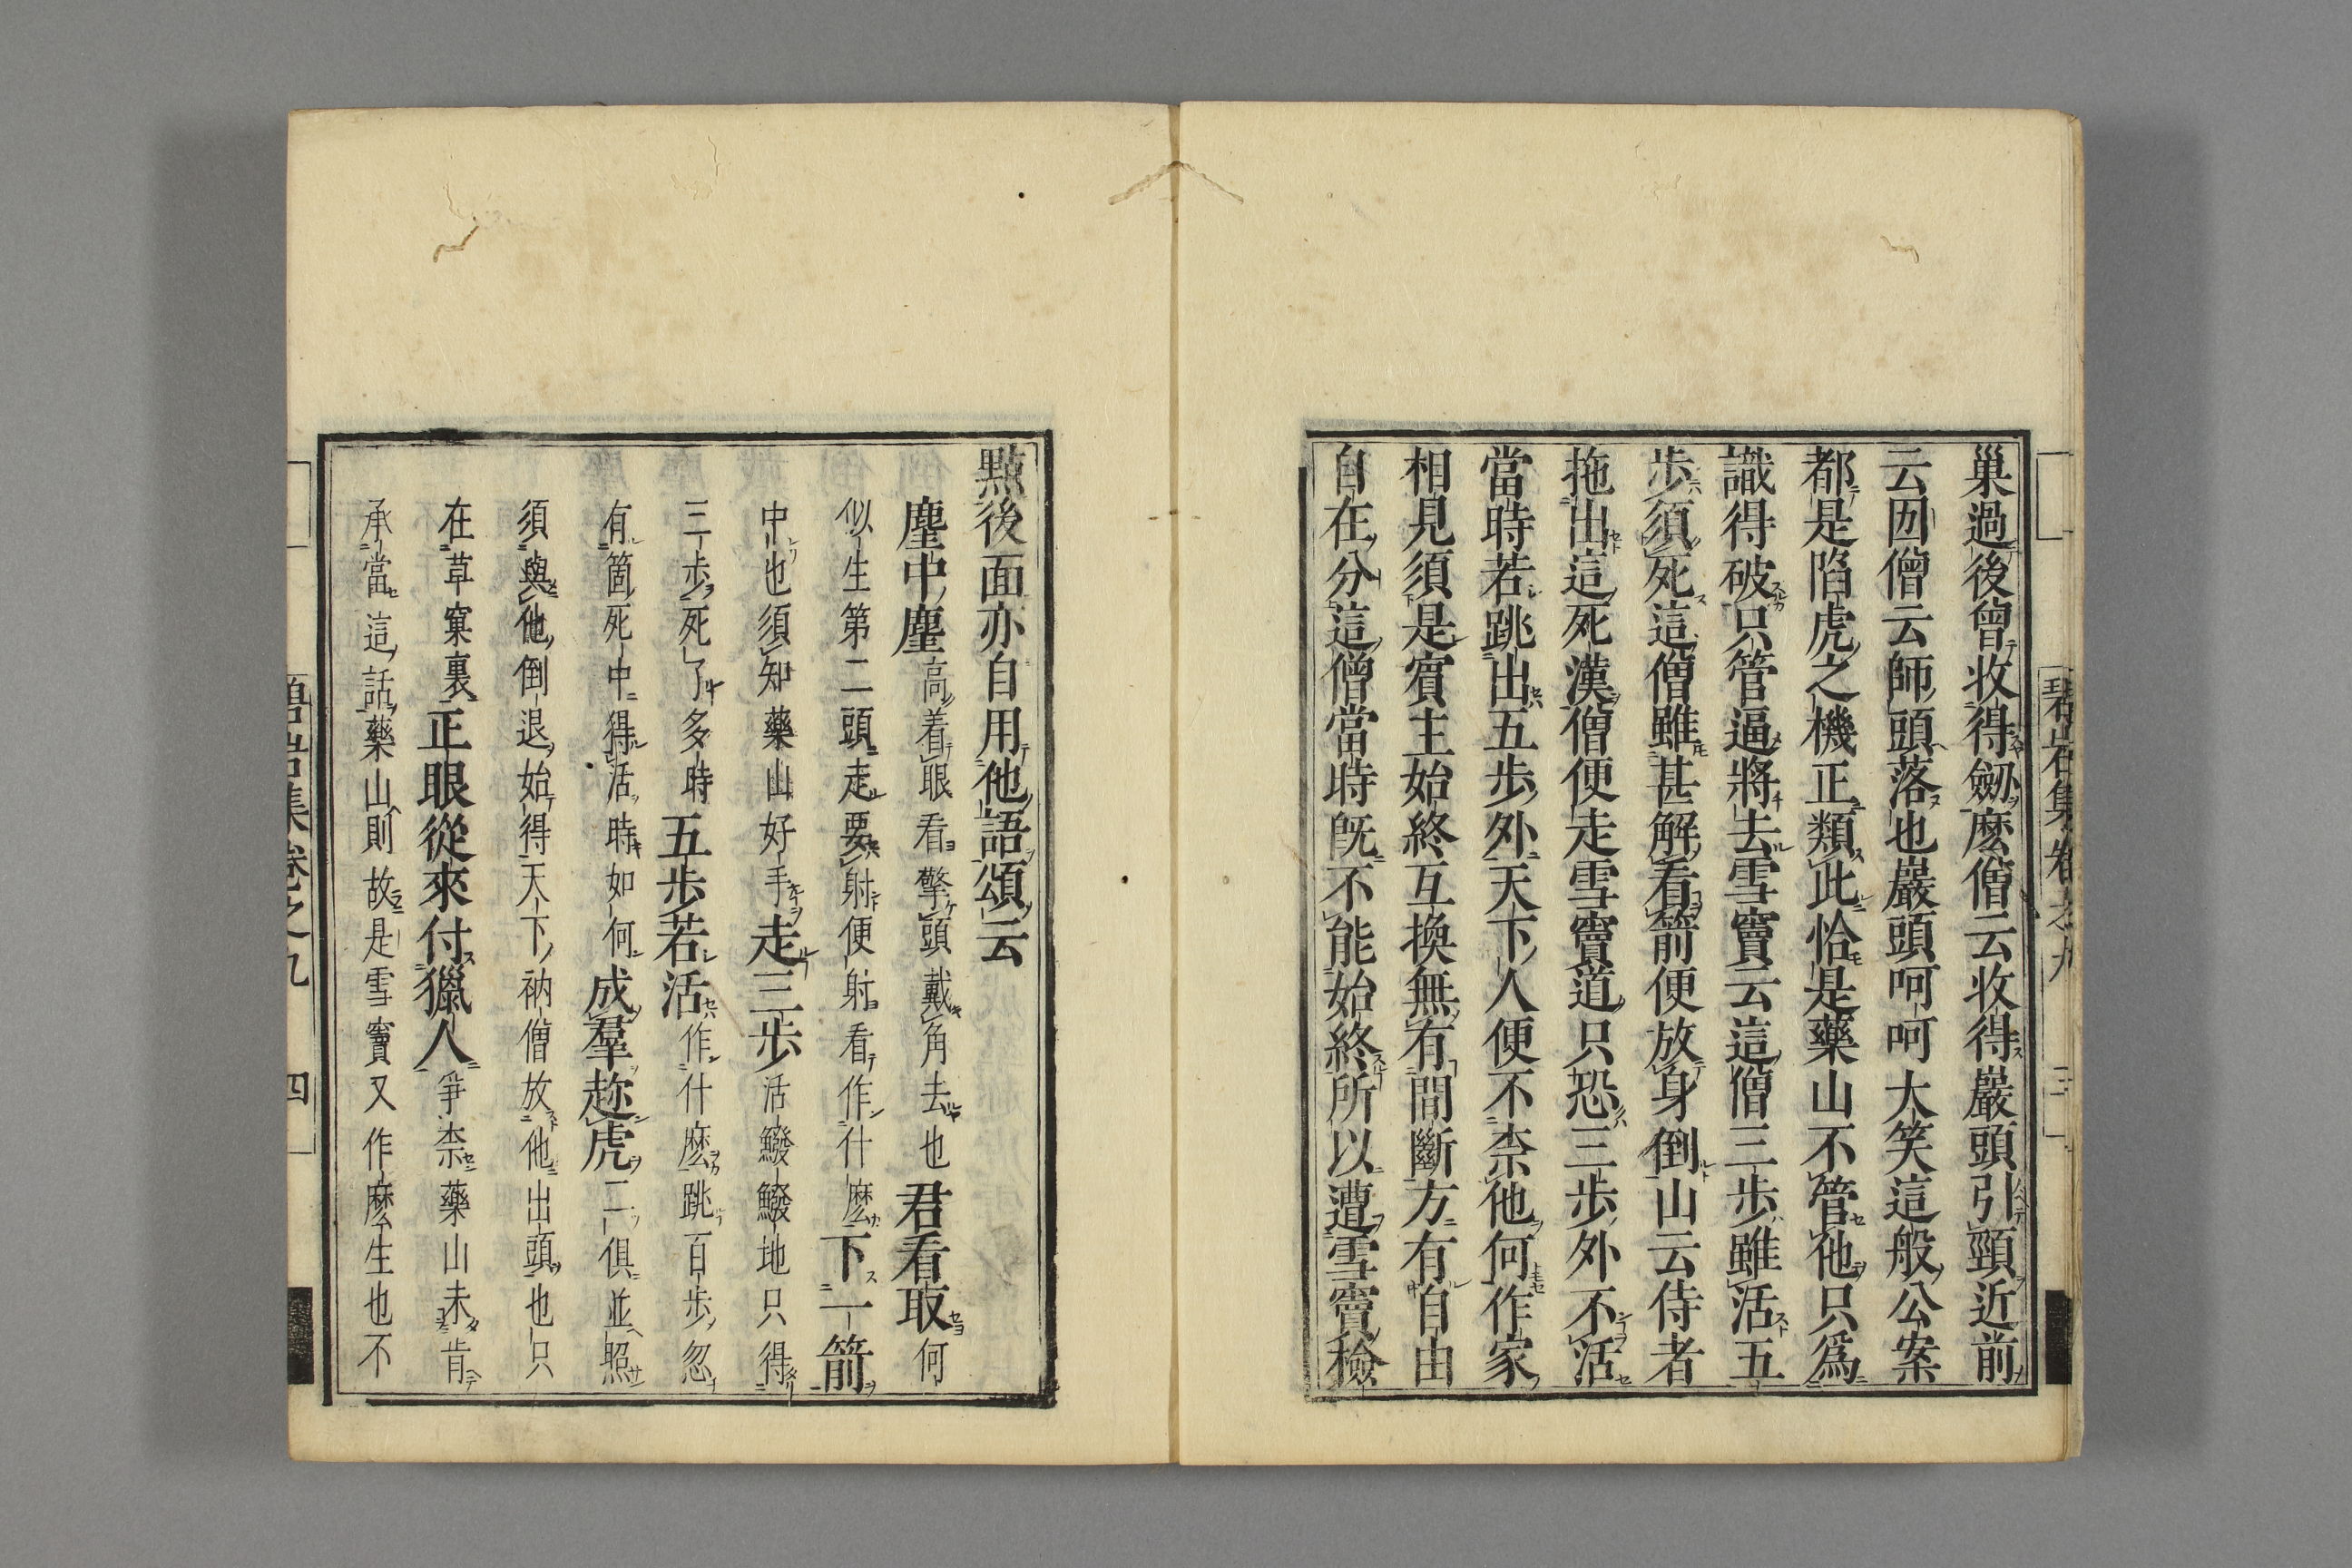 巢過後曾收得劒麽僧云收得巖頭引頸近前
云㘞僧云師頭落也巖頭呵呵大笑這般公案
都是陷虎之機正類此恰是藥山不管他只爲
識得破只管逼將去雪竇云這僧三歩雖活五
歩須死這僧雖甚解看箭便放身倒山云侍者
拖出這死漢僧便走雪竇道只恐三歩外不活
當時若跳出五歩外天下人便不柰他何作家
相見須是賓主始終互換無有間斷方有自由
自在分這僧當時旣不能始終所以遭雪竇檢
碧岩集卷之九 三
點後面亦自用他語頌云
麈中麈高着眼看擎頭戴角去也君看取何
似生第二頭走要射便射看作什麽下一箭
中也須知藥山好手走三歩活鱍鱍地只得
三歩死了多時五歩若活作什麽跳百歩忽
有箇死中得活時如何成羣趂虎二俱並照
須與他倒退始得天下衲僧放他出頭也只
在草窠裏正眼從來付獵人爭柰藥山未肯
承當這話藥山則故是雪竇又作麽生也不
碧岩集卷之九 四